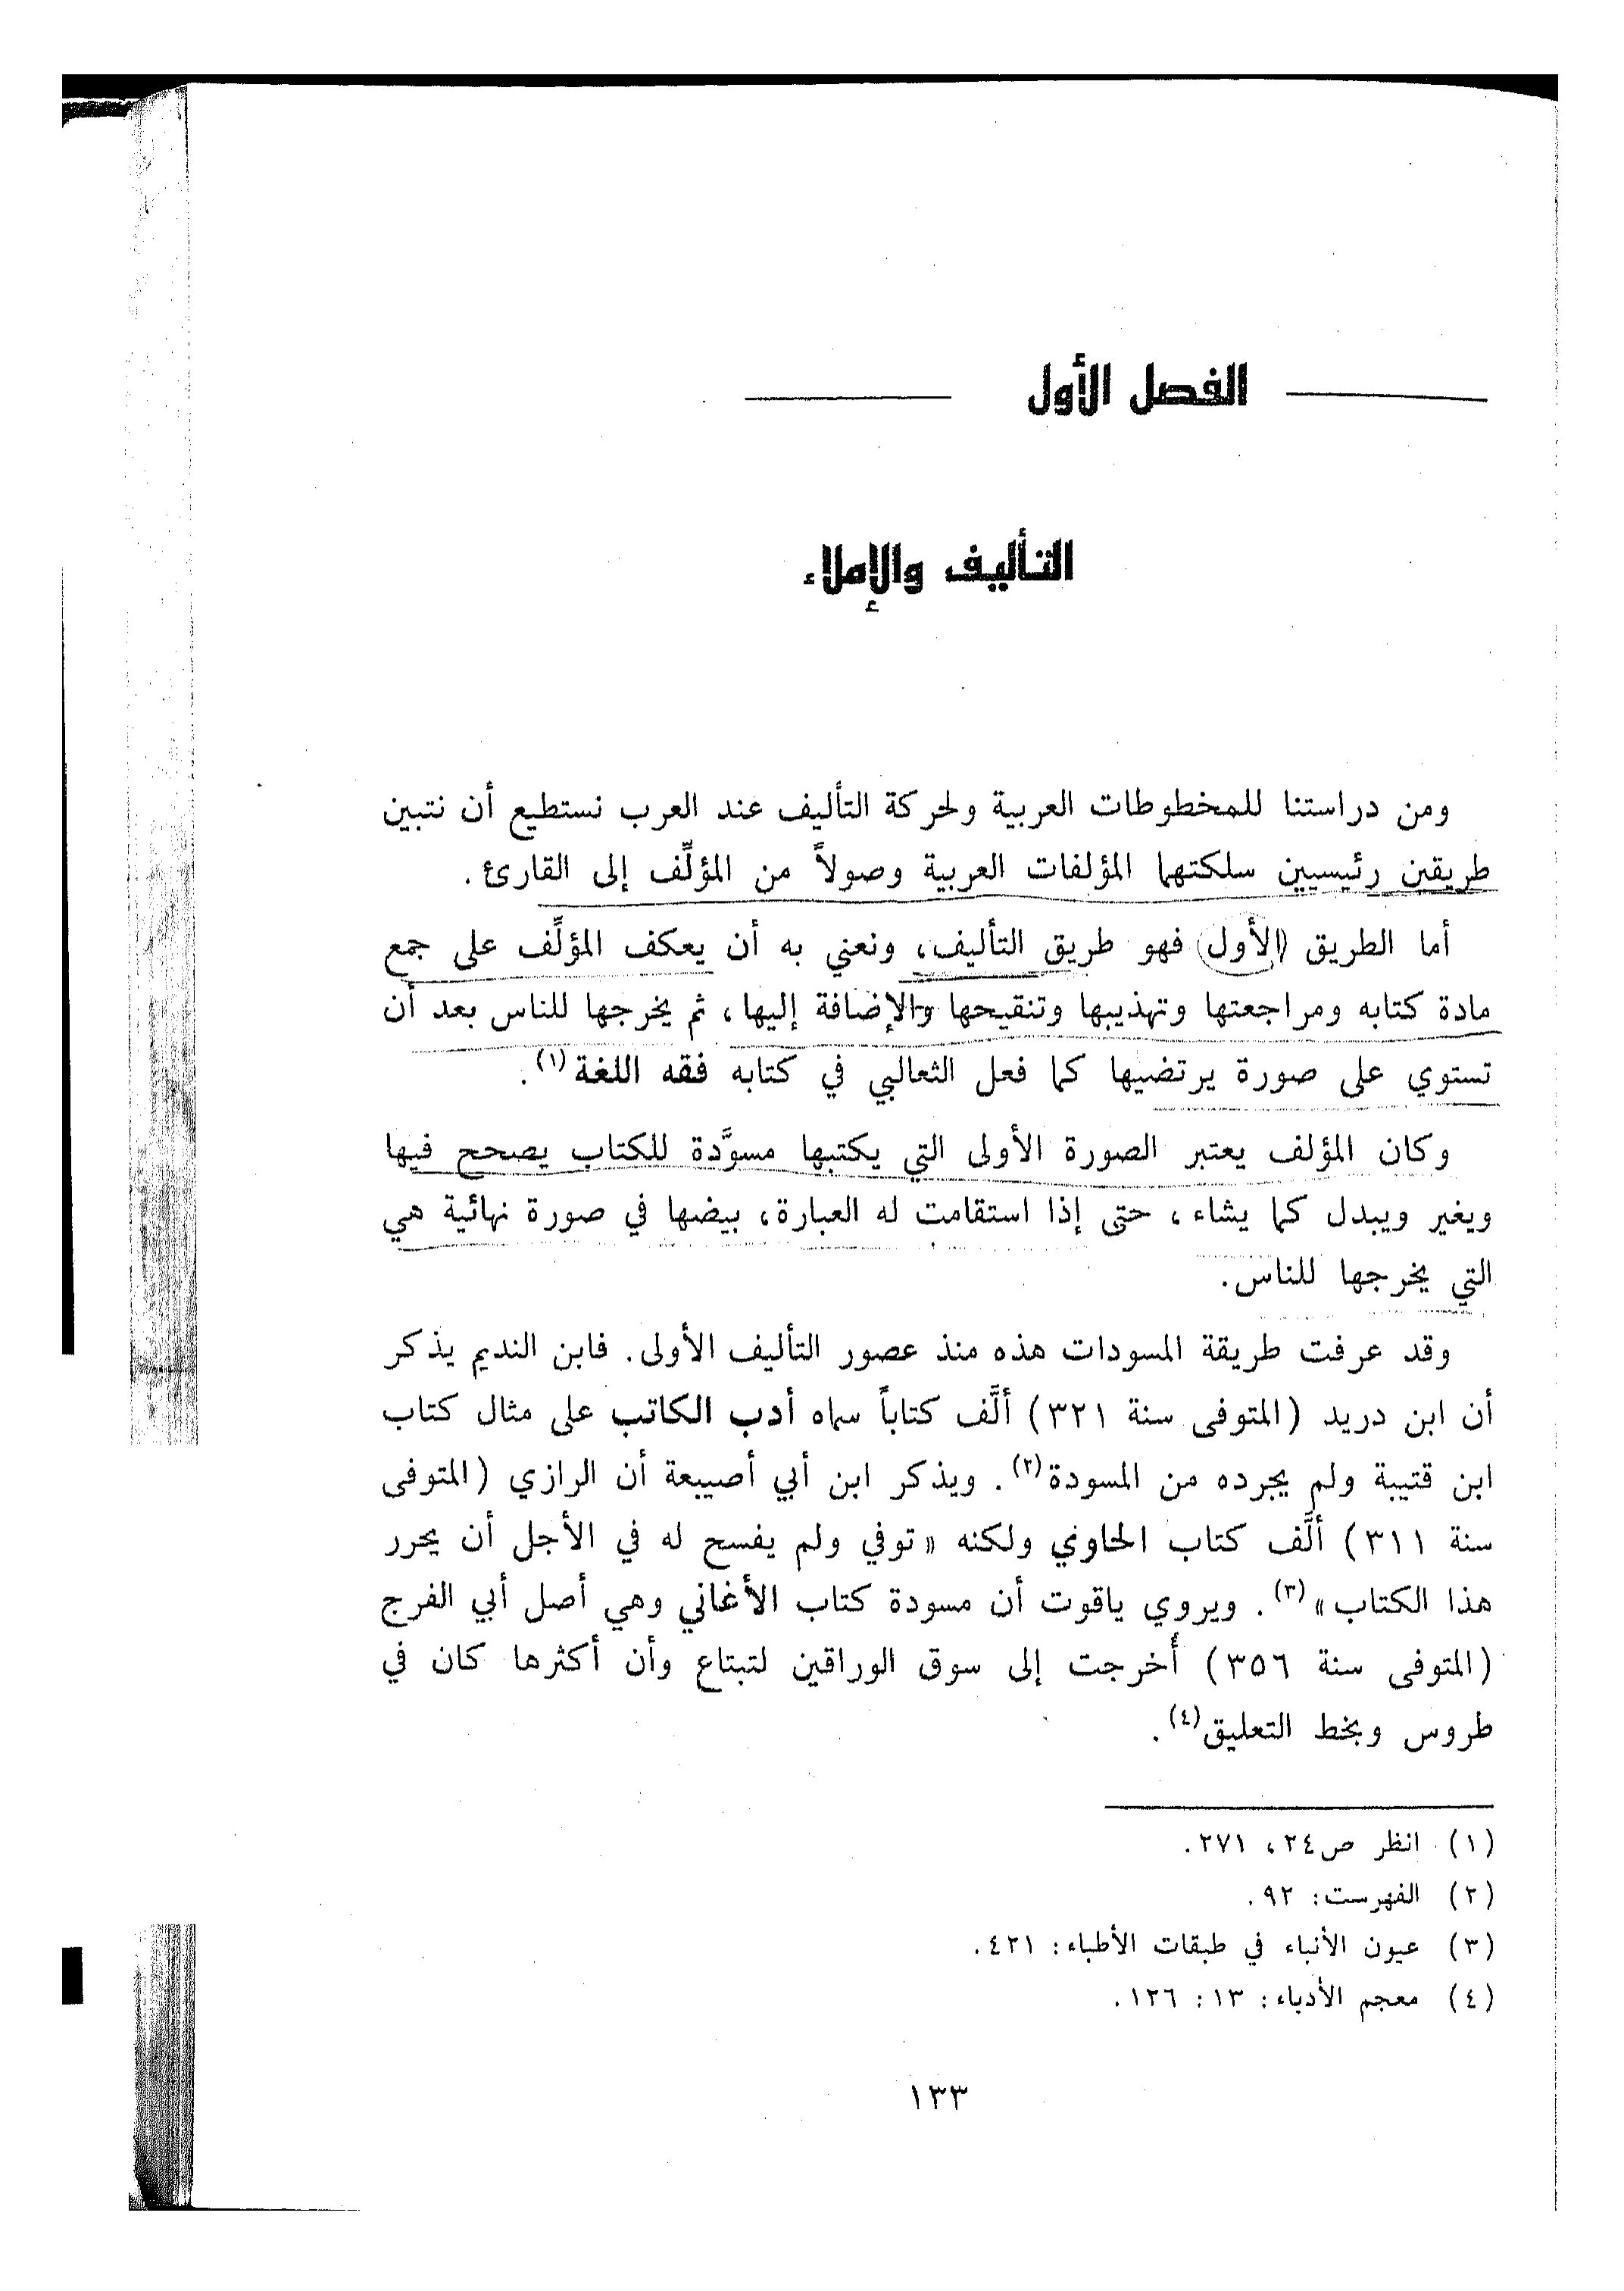 الفصل الأول
التأليف والإملاء
ومن دراستنا للمخطوطات العربية ولحركة التأليف عند العرب نستطيع أن نتبين
طريقين رئيسيين سلكتهما المؤلفات العربية وصولاً من المؤلِّف إلى القارئ.
أما الطريق الأول فهو طريق التأليف، ونعني به أن يعكف المؤلِّف على جمع
مادة كتابه ومراجعتها وتهذيبها وتنقيحها والإضافة إليها، ثم يخرجها للناس بعد أن
تستوي على صورة يرتضيها كما فعل الثعالبي في كتابه فقه اللغة(١).
وكان المؤلف يعتبر الصورة الأولى التي يكتبها مسوَّدة للكتاب يصحح فيها
ويغير ويبدل كما يشاء، حتى إذا استقامت له العبارة، بيضها في صورة نهائية هي
التي يخرجها للناس.
وقد عرفت طريقة المسودات هذه منذ عصور التأليف الأولى. فابن النديم يذكر
أن ابن دريد (المتوفى سنة ٣٢١) ألَّف كتاباً سماه أدب الكاتب على مثال كتاب
ابن قتيبة ولم يجرده من المسودة(٢). ويذكر ابن أبي أصيبعة أن الرازي (المتوفى
سنة ٣١١) ألَّف كتاب الحاوي ولكنه «توفي ولم يفسح له في الأجل أن يحرر
هذا الكتاب»(٣). ويروي ياقوت أن مسودة كتاب الأغاني وهي أصل أبي الفرج
(المتوفى سنة ٣٥٦) أُخرجت إلى سوق الوراقين لتبتاع وأن أكثرها كان في
طروس وبخط التعليق(٤).
(١) انظر ص٢٤، ٢٧١.
(٢) الفهرست: ٩٢.
(٣) عيون الأنباء في طبقات الأطباء: ٤٢١.
(٤) معجم الأدباء: ١٣: ١٢٦.
١٣٣